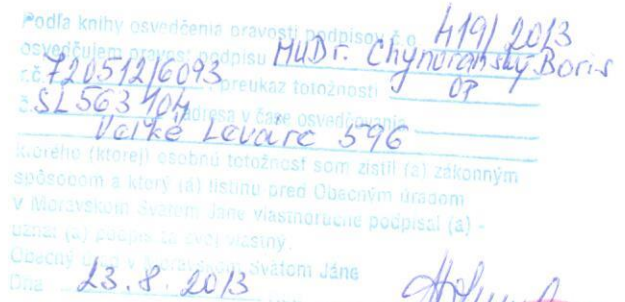 Podľa knihy osvedčenia pravosti podpisov č.o. 419/2013
osvedčujem pravosť podpisu MUDr. Chynoranský Boris
r.č. 720512/6093 preukaz totožnosti OP
č. SL563104 adresa v čase osvedčovania
Veľké Leváre 596
ktorého (ktorej) osobnú totožnosť som zistil (a) zákonným
spôsobom a ktorý (á) listinu pred Obecným úradom
v Moravskom Svätom Jáne vlastnoručne podpísal (a) -
uznal (a) podpis za svoj vlastný.
Obecný úrad v Moravskom Svätom Jáne
Dňa 23.8.2013